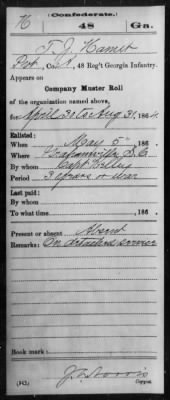 (Confederate.)
H 48 Ga.
T. J. Hamet
Pvt, Co. A, 48 Reg't Georgia Infantry.
Appears on
Company Muster Roll
of the organization named above,
for April 30 to Aug 31, 1864.
Enlisted:
When May 5, 186 .
Where S.C.
By whom Capt
Period 3 years or war
Last paid:
By whom
To what time , 186 .
Present or absent Absent
Remarks: On detached service
Book mark:
(642)
Copyist.